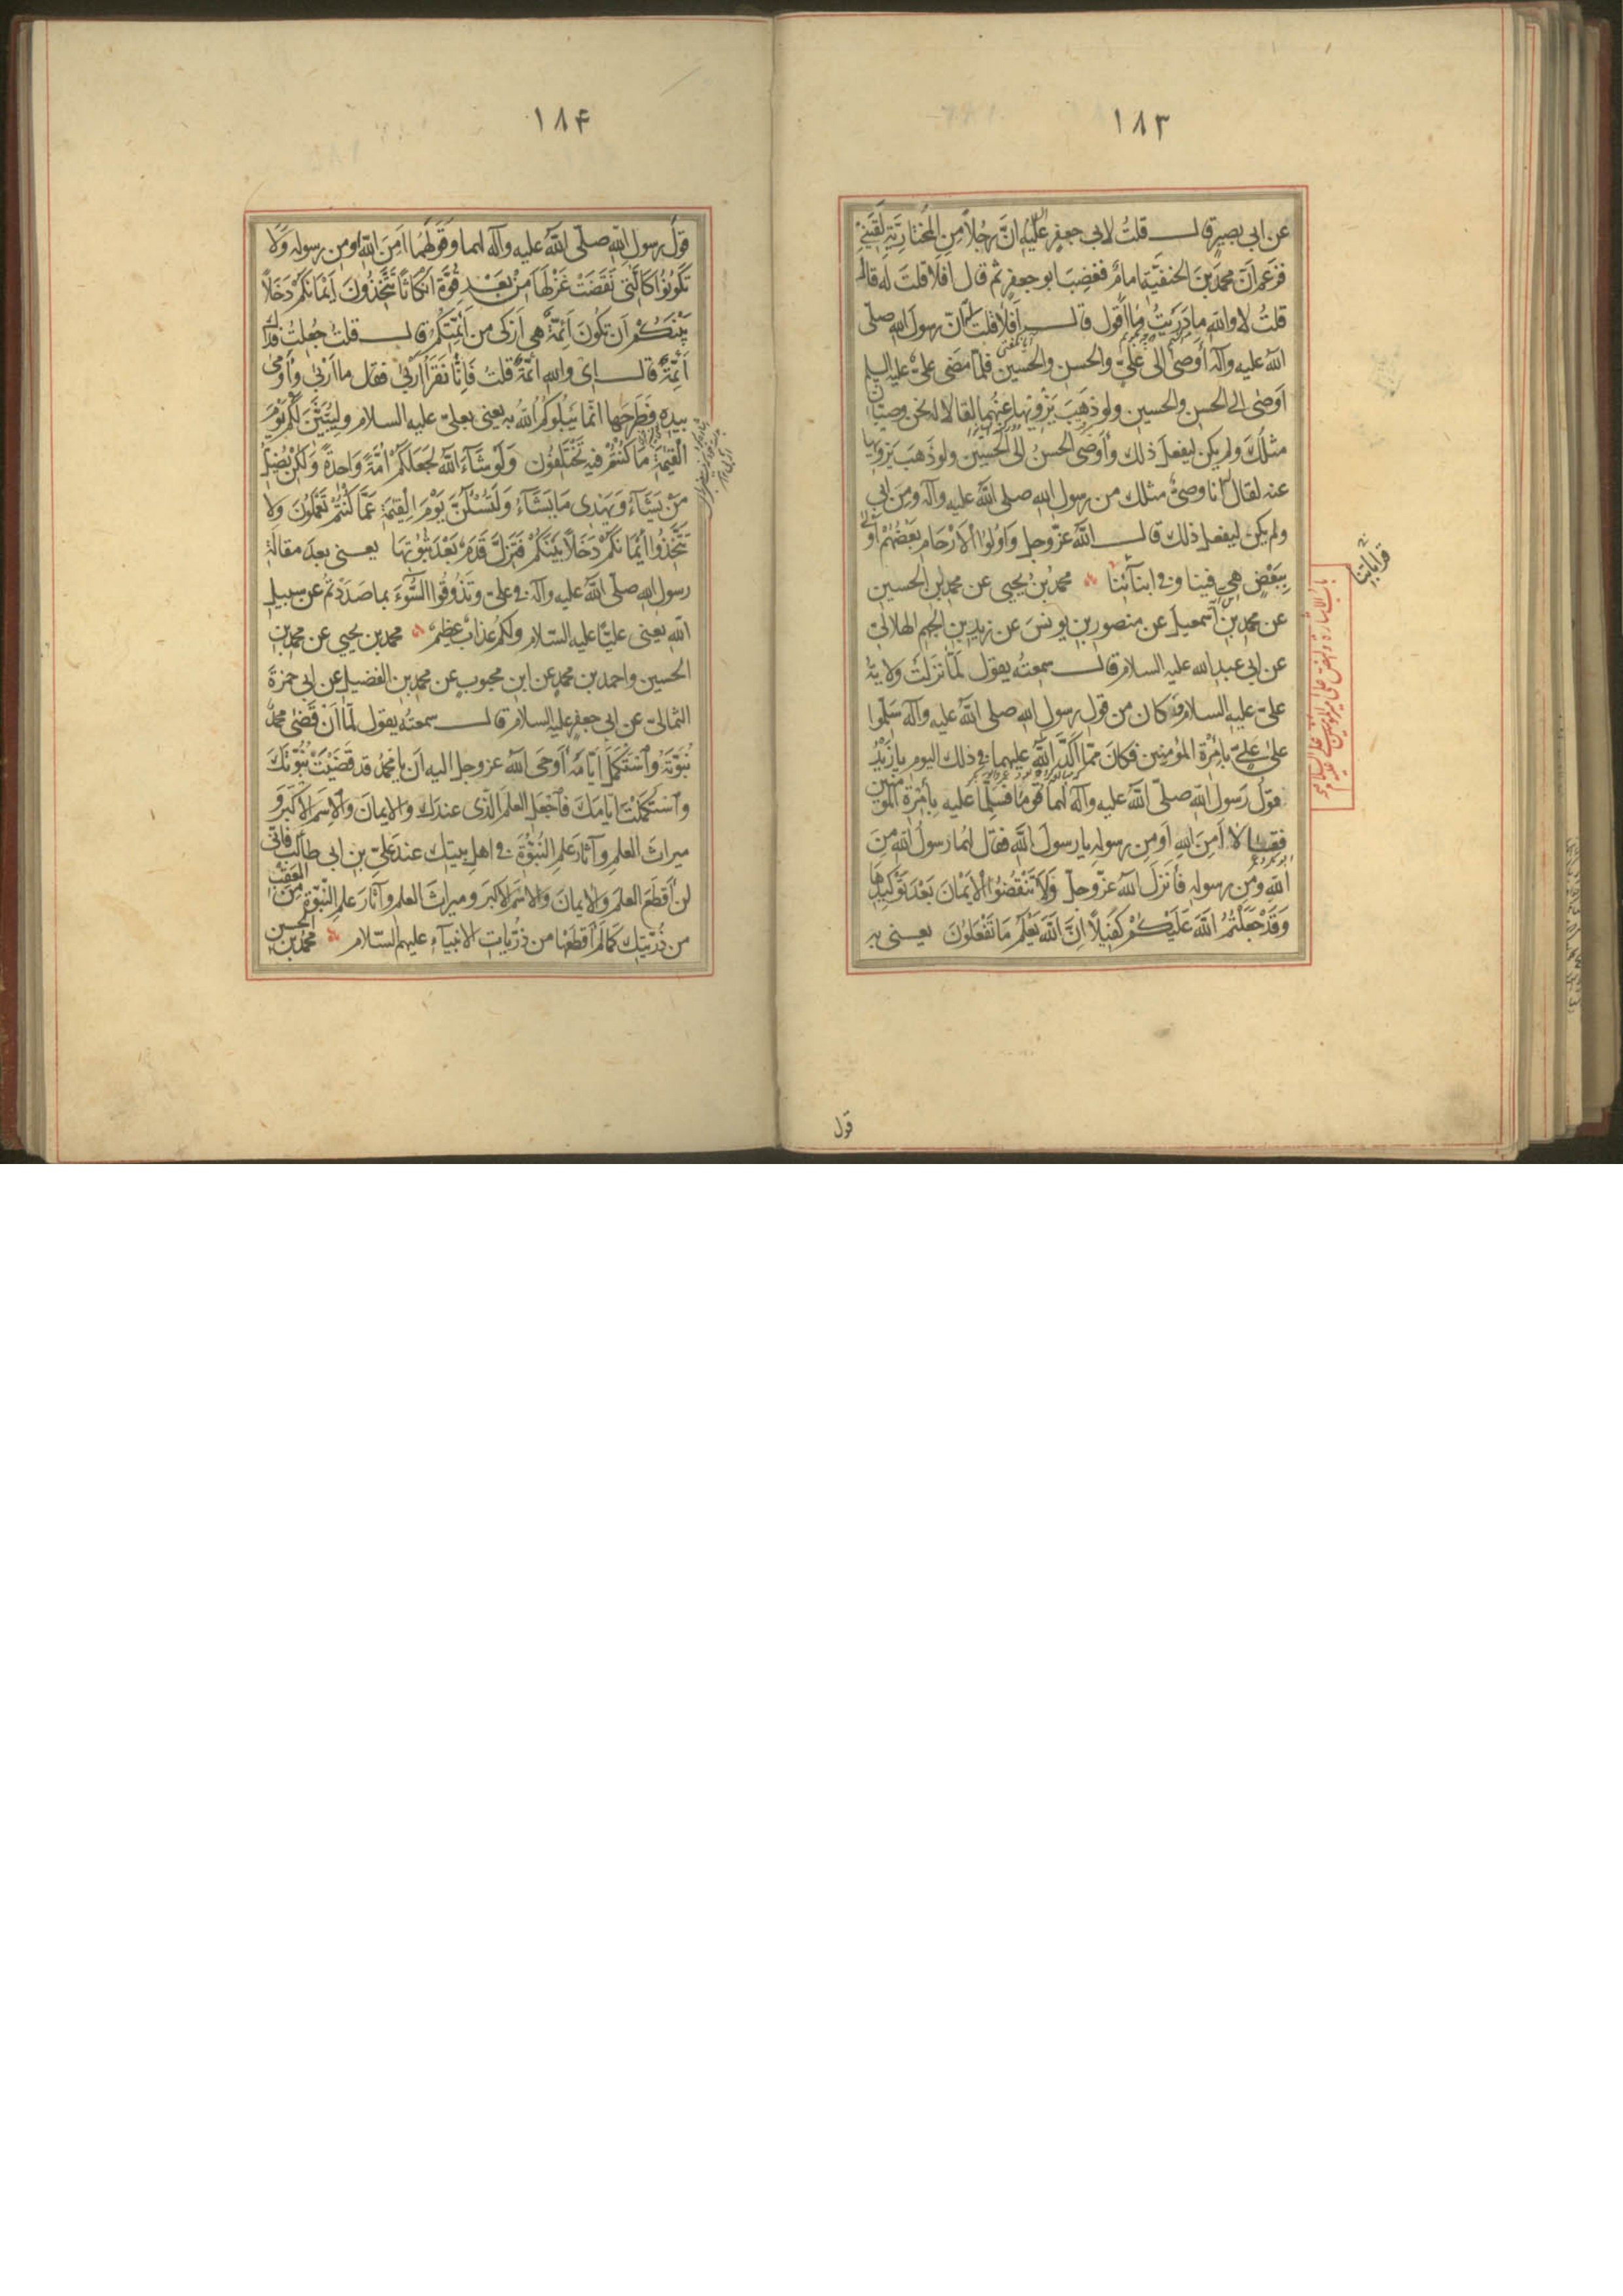 ١٨٣
عن ابى بصير قال قلتُ لابى جعفر عليه السلام انّ رجُلاً مِنِ المُختارِيّةِ لَقِيَنى
فزعم انّ محمّدَ بنَ الحنفيّةِ امامٌ فغضِبَ ابو جعفرٍ ثم قال افلا قلتَ له قال
قلتُ لا والله ما دَرَيتُ ما اقول قال افلا قلتَ له انّ رسولَ الله صلّى
الله عليه وآله أوصى الى علىٍّ والحسن والحسين فلمّا مضى علىٌّ عليه السلم
اوصٰى الى الحسن والحسين ولو ذهبَ يَزْويها عنهما لقالا له نحن وصيّان
مثلُك ولم يكن ليفعل ذلك وأوصى الحسنُ الى الحسين ولو ذهبَ يزويها
عنه لقال انا وصىٌّ مثلك من رسول الله صلى الله عليه وآله ومن ابى
ولم يكن ليفعل ذلك قال الله عزّوجل وَاُولُوا الْاَرْحامِ بَعْضُهُمْ اَوْلٰى
بِبَعْضٍ هى فينا وفى ابنآئنا محمّدُ بنُ يحيى عن محمد بن الحسين
عن محمد بن اسمعيل عن منصور بن يونس عن زيد بن الجهم الهلالىّ
عن ابى عبد الله عليه السلام قال سمعته يقول لمّا نزلَتْ ولايةُ
علىّ عليه السلام وكان من قول رسول الله صلى الله عليه وآله سَلِّموا
علىٰ علىٍّ بإِمْرةِ المؤمنين فكانَ ممّا اكّدَ الله عليهما فى ذلك اليوم يا زيدُ
قولُ رسول الله صلّى الله عليه وآله لهما قوما فسلّما عليه بِإِمْرَةِ المؤمنين
فقالا اَمِنَ اللهِ اَو مِن رسولهِ يا رسولَ الله فقال لهما رسولُ الله مِنَ
اللهِ ومِن رسوله فأنزلَ الله عزّوجلّ وَلَا تَنْقُضُوا الْاَيْمانَ بَعْدَ تَوْكِيدِهَا
وَقَدْ جَعَلْتُمُ اللّٰهَ عَلَيْكُمْ كَفِيلًا اِنَّ اللّٰهَ يَعْلَمُ مَا تَفْعَلُونَ يعنى به
باب الاشارة والنص على امير المؤمنين عليه السلام
قول
١٨۴
قولَ رسول الله صلّى الله عليه وآله لهما وقولَهُما اَمِنَ اللهِ اَو مِن رسوله وَلا
تَكُونُوا كَالَّتى نَقَضَتْ غَزْلَهَا مِنْ بَعْدِ قُوَّةٍ اَنْكاثاً تَتَّخِذُونَ اَيْمانَكُمْ دَخَلاً
بَيْنَكُمْ اَن تكُونَ اَئِمّةٌ هى اَزكى من اَئِمّتِكُمْ قال قلتُ جُعِلتُ فداك
اَئِمّةٌ قال اى واللهِ ائمّةٌ قلتُ فَاِنّا نَقْرَأُ اَرْبىٰ فقال ما اَرْبىٰ وأومى
بيده فطرحها انّما يَبْلُوكُمُ اللّٰهُ بِهِ يعنى بعلىّ عليه السلام ولَيُبَيِّنَنَّ لَكُمْ يَوْمَ
الْقِيٰمَةِ مَا كُنْتُمْ فيهِ تَخْتَلِفُون وَلَوْ شَآءَ اللّٰهُ لَجَعَلَكُمْ اُمَّةً وَاحِدَةً وَلٰكِنْ يُضِلُّ
مَنْ يَشَآءُ وَيَهْدِى مَن يَشَآءُ وَلَتُسْئَلُنَّ يَوْمَ الْقِيٰمَةِ عَمَّا كُنْتُمْ تَعْمَلُونَ وَلا
تَتَّخِذُوا اَيْمانَكُمْ دَخَلاً بَيْنَكُمْ فَتَزِلَّ قَدَمٌ بَعْدَ ثُبُوتِهَا يعنى بعدَ مقالة
رسول الله صلّى الله عليه وآله فى علىّ وَتَذُوقُوا السُّوٓءَ بما صَدَدْتُم عن سبيل
الله يعنى عليّاً عليه السّلام ولكُم عَذابٌ عظيمٌ محمد بن يحيى عن محمد بن
الحسين واحمد بن محمدٍ عن ابن محبوبٍ عن محمد بن الفضيل عن ابى حمزة
الثمالىّ عن ابى جعفر عليه السلام قال سمعتُه يقول لمّا اَنْ قَضىٰ محمّدٌ
نُبوّتَهُ واسْتَكمَلَ ايّامَهُ اَوحَى الله عزوجل اليه اَن يا محمّدُ قد قَضَيْتَ نُبُوّتَكَ
واسْتَكْمَلْتَ ايّامَكَ فاجْعَلِ العلمَ الّذى عندك والايمانَ والاِسمَ الاَكبَرَ و
ميراثَ العلمِ وآثارَ علمِ النّبُوّةِ فى اهلِ بيتك عندَ علىِّ بن ابى طالب فانى
لن اَقطَعَ العلمَ والايمانَ والاسمَ الاكبرَ وميراثَ العلم وآثارَ علمِ النّبوّة من العقب
من ذُرّيّتِك كما لَم اَقطَعْها من ذُرّيّات الانبيآء عليهم السّلام محمد بن الحسين